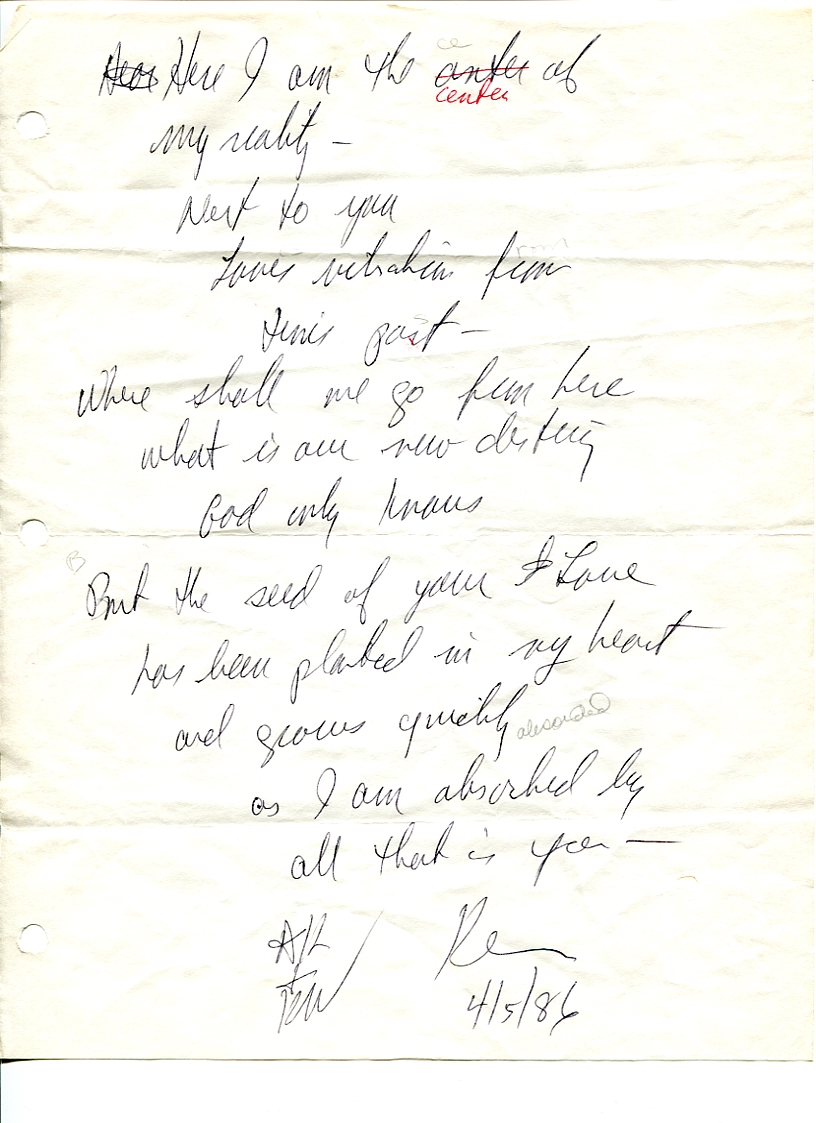 Here I am the center of
my reality –
Next to you
Loves vibration from
time's past –
Where shall we go from here
what is our new destiny
God only knows
But the seed of your Love
has been planted in my heart
and grows quickly absorbed
as I am absorbed by
all that is you —
Ken
4/5/86